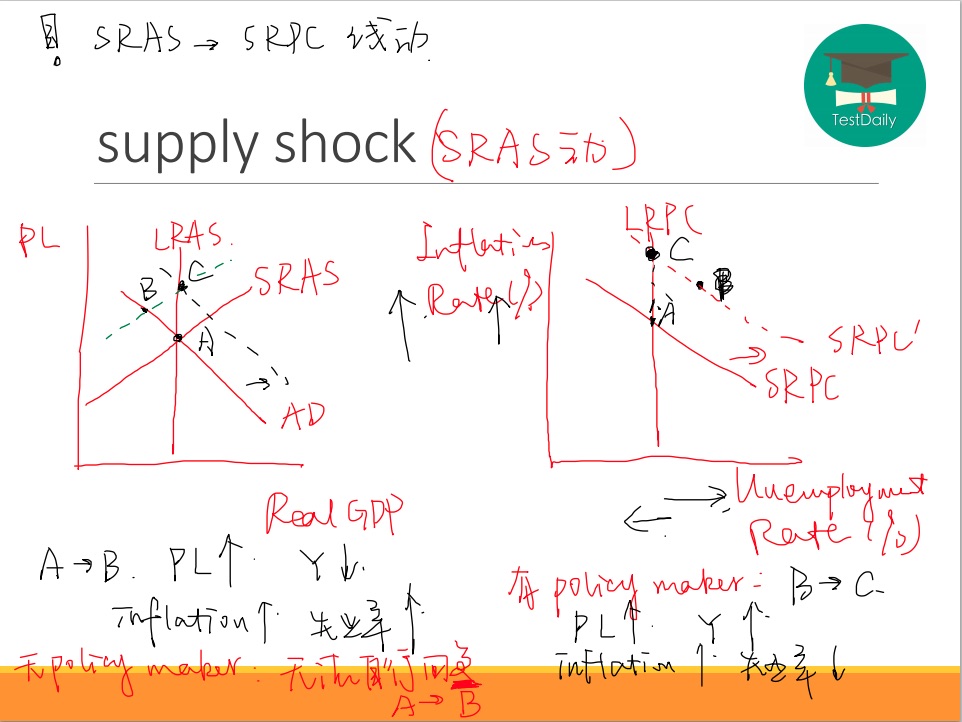 ! SRAS → SRPC 线动.
TestDaily
supply shock (SRAS云力)
PL
LRAS.
B
C
SRAS
A
AD
Real GDP
Inflation
Rate (%)
LRPC
C
B
A
SRPC'
SRPC
Unemployment
Rate (%)
A → B. PL↑. Y↓.
inflation↑. 失业率↑.
无 policy maker: 无法自行回复
A → B
有 policy maker: B → C.
PL↑. Y↑.
inflation↑. 失业率↓